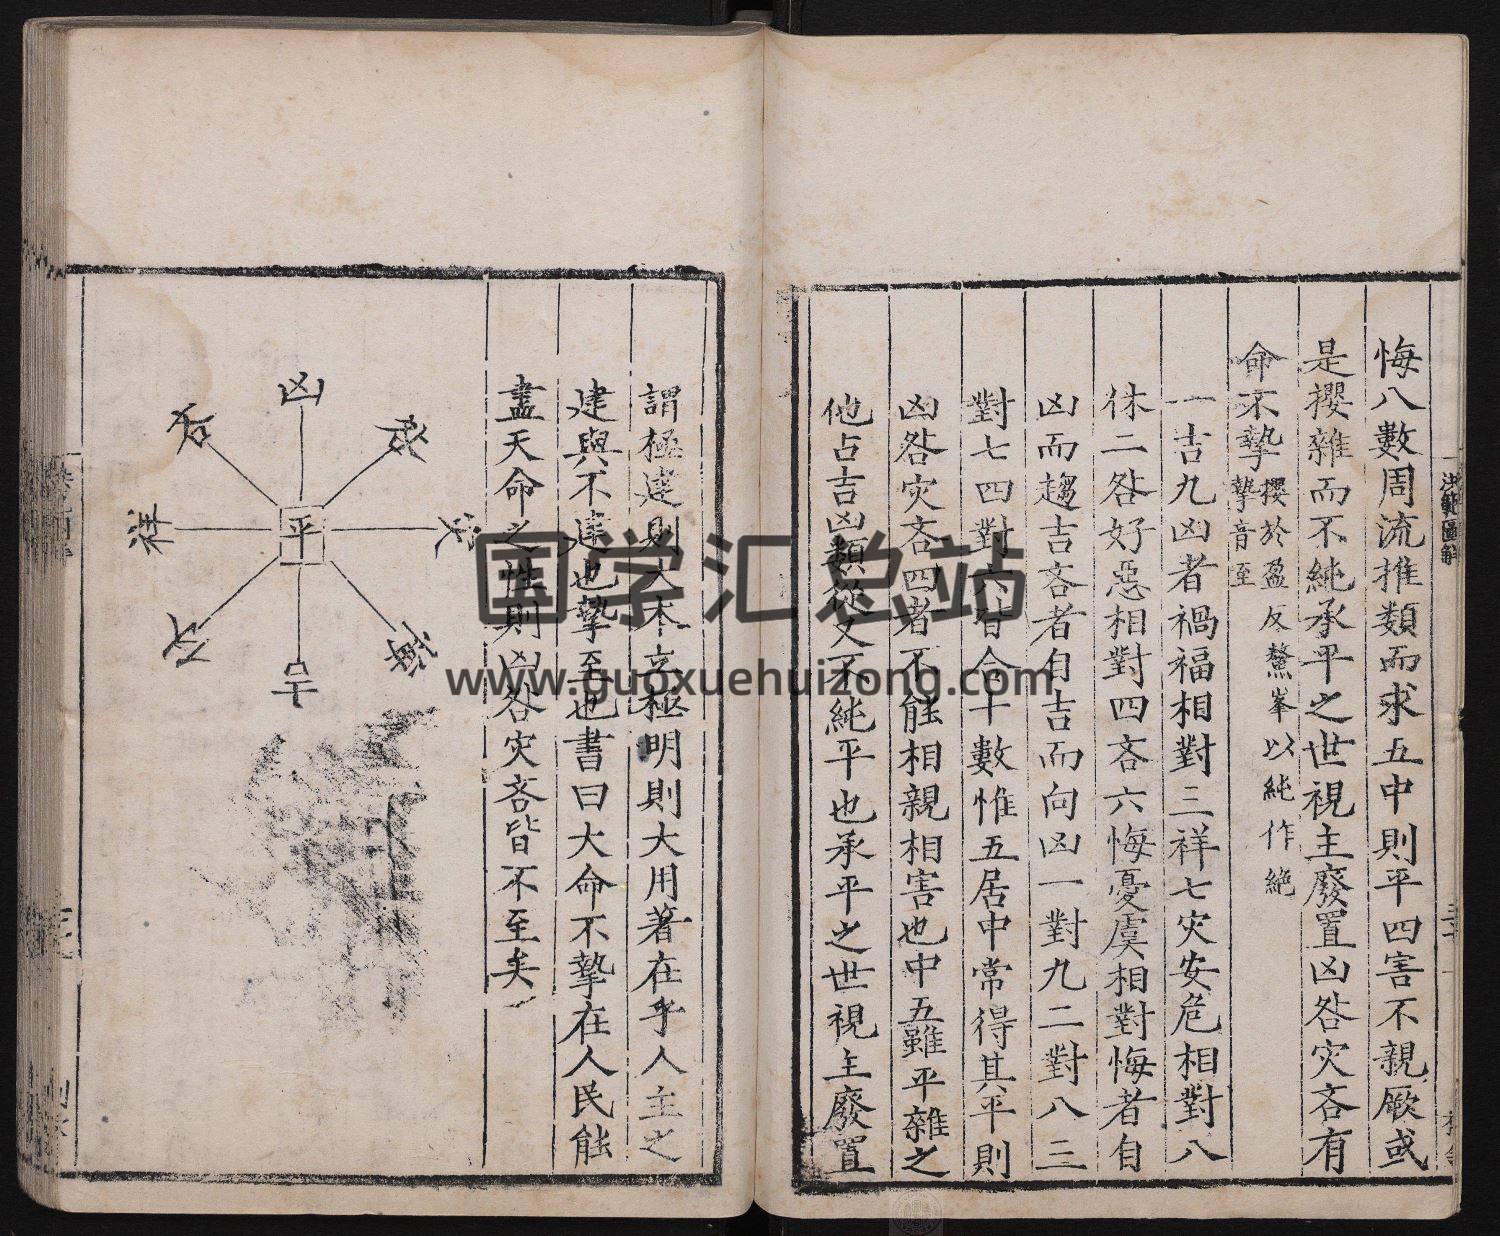 悔八數周流推類而求五中則平四害不親厥或
是攖雜而不純承平之世視主廢置凶咎灾吝有
命不摯
攖於盈反鰲峯以純作絶
摯音至
一吉九凶者禍福相對三祥七灾安危相對八
休二咎好惡相對四吝六悔憂虞相對悔者自
凶而趨吉吝者自吉而向凶一對九二對八三
對七四對六皆合十數惟五居中常得其平則
凶咎灾吝四者不能相親相害也中五雖平雜之
他占吉凶類從又不純平也承平之世視主廢置
謂極建則大本立極明則大用著在乎人主之
建與不建也摯至也書曰大命不摯在人民能
盡天命之性則凶咎灾吝皆不至矣
凶
咎
灾
悔
吉
休
祥
吝
平
国学汇总站
www.guoxuehuizong.com